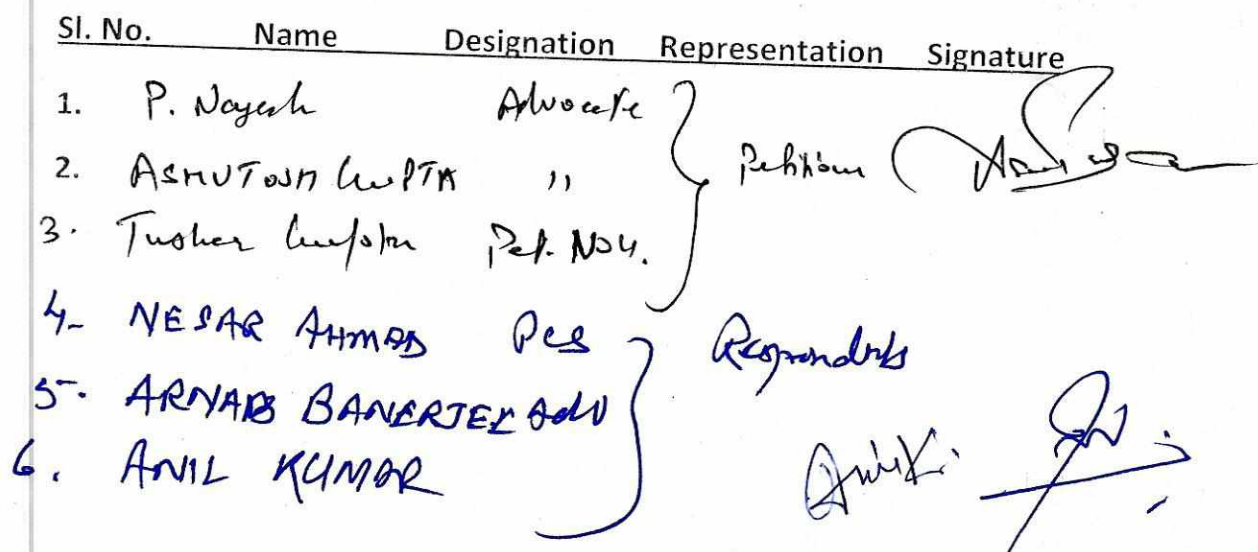 Sl. No. Name Designation Representation Signature
1. P. Nagesh Advocate
2. ASHUTOSH GUPTA " Petitioner
3. Tushar Gupta Pet. No 4.
4- NESAR AHMAD PCS Respondents
5-. ARNAB BANERJEE Adv
6. ANIL KUMAR